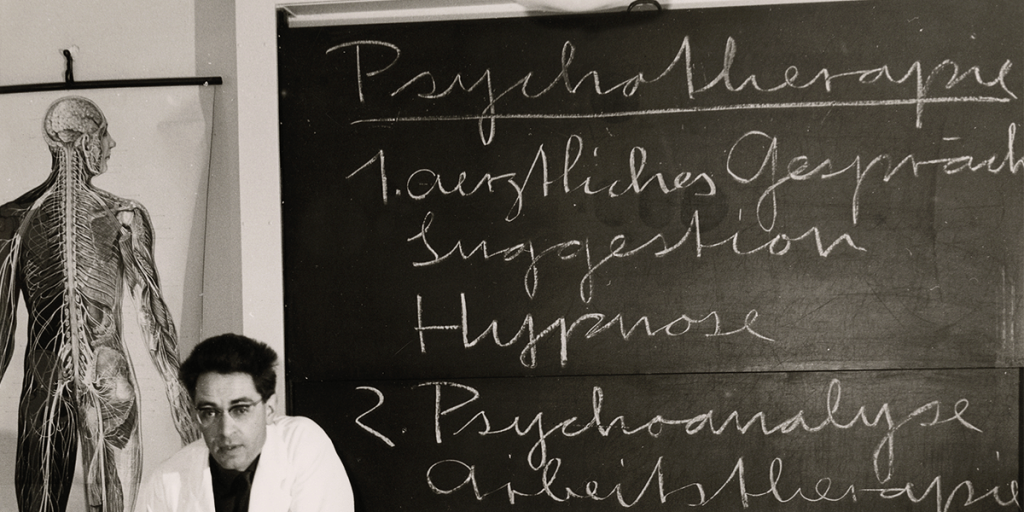 Psychotherapie
1. aerztliches Gespräch
Suggestion
Hypnose
2. Psychoanalyse
Arbeitstherapie